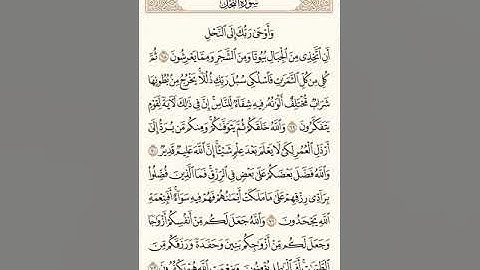 سُورَةُ النَّحْلِ
وَأَوْحَىٰ رَبُّكَ إِلَى النَّحْلِ
أَنِ اتَّخِذِي مِنَ الْجِبَالِ بُيُوتًا وَمِنَ الشَّجَرِ وَمِمَّا يَعْرِشُونَ ۝٦٨ ثُمَّ
كُلِي مِن كُلِّ الثَّمَرَاتِ فَاسْلُكِي سُبُلَ رَبِّكِ ذُلُلًا يَخْرُجُ مِن بُطُونِهَا
شَرَابٌ مُّخْتَلِفٌ أَلْوَانُهُ فِيهِ شِفَاءٌ لِّلنَّاسِ إِنَّ فِي ذَٰلِكَ لَآيَةً لِّقَوْمٍ
يَتَفَكَّرُونَ ۝٦٩ وَاللَّهُ خَلَقَكُمْ ثُمَّ يَتَوَفَّاكُمْ وَمِنكُم مَّن يُرَدُّ إِلَىٰ
أَرْذَلِ الْعُمُرِ لِكَيْ لَا يَعْلَمَ بَعْدَ عِلْمٍ شَيْئًا إِنَّ اللَّهَ عَلِيمٌ قَدِيرٌ ۝٧٠
وَاللَّهُ فَضَّلَ بَعْضَكُمْ عَلَىٰ بَعْضٍ فِي الرِّزْقِ فَمَا الَّذِينَ فُضِّلُوا
بِرَادِّي رِزْقِهِمْ عَلَىٰ مَا مَلَكَتْ أَيْمَانُهُمْ فَهُمْ فِيهِ سَوَاءٌ أَفَبِنِعْمَةِ
اللَّهِ يَجْحَدُونَ ۝٧١ وَاللَّهُ جَعَلَ لَكُم مِّنْ أَنفُسِكُمْ أَزْوَاجًا
وَجَعَلَ لَكُم مِّنْ أَزْوَاجِكُم بَنِينَ وَحَفَدَةً وَرَزَقَكُم مِّنَ
الطَّيِّبَاتِ أَفَبِالْبَاطِلِ يُؤْمِنُونَ وَبِنِعْمَتِ اللَّهِ هُمْ يَكْفُرُونَ ۝٧٢